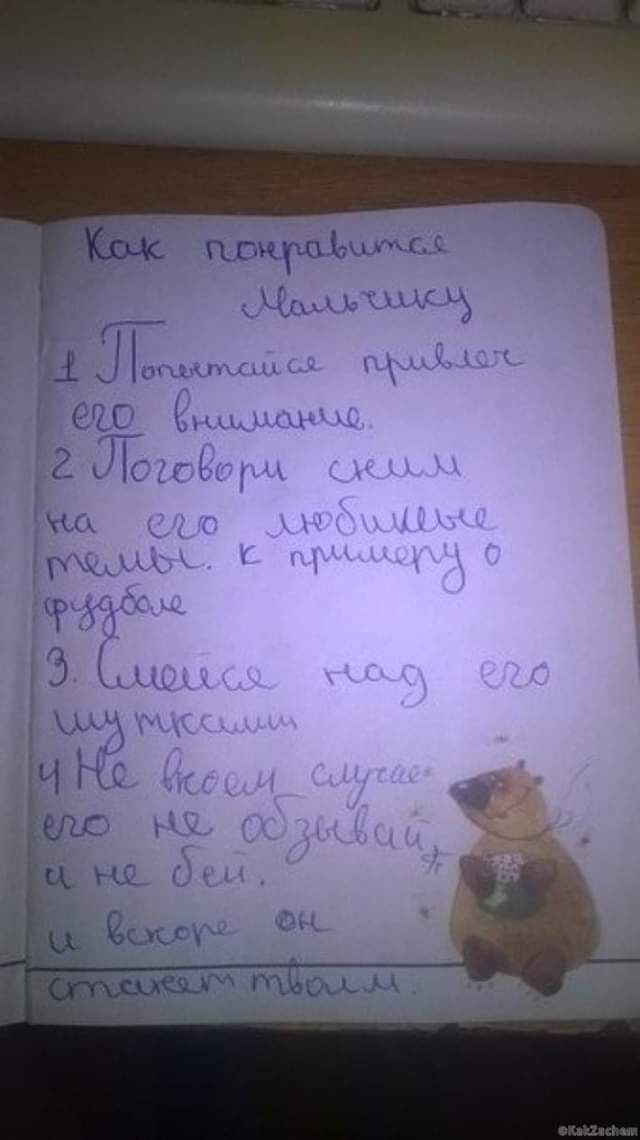 Как понравится
Мальчику
1 Попытайся привлеч
его внимание.
2 Поговори сним
на его любимые
темы. к примеру о
фудболе
3. Смейся над его
шутками
4 Не вкоем случае
его не обзывай,
и не бей.
и вскоре он
станет твоим.
©KakZachem